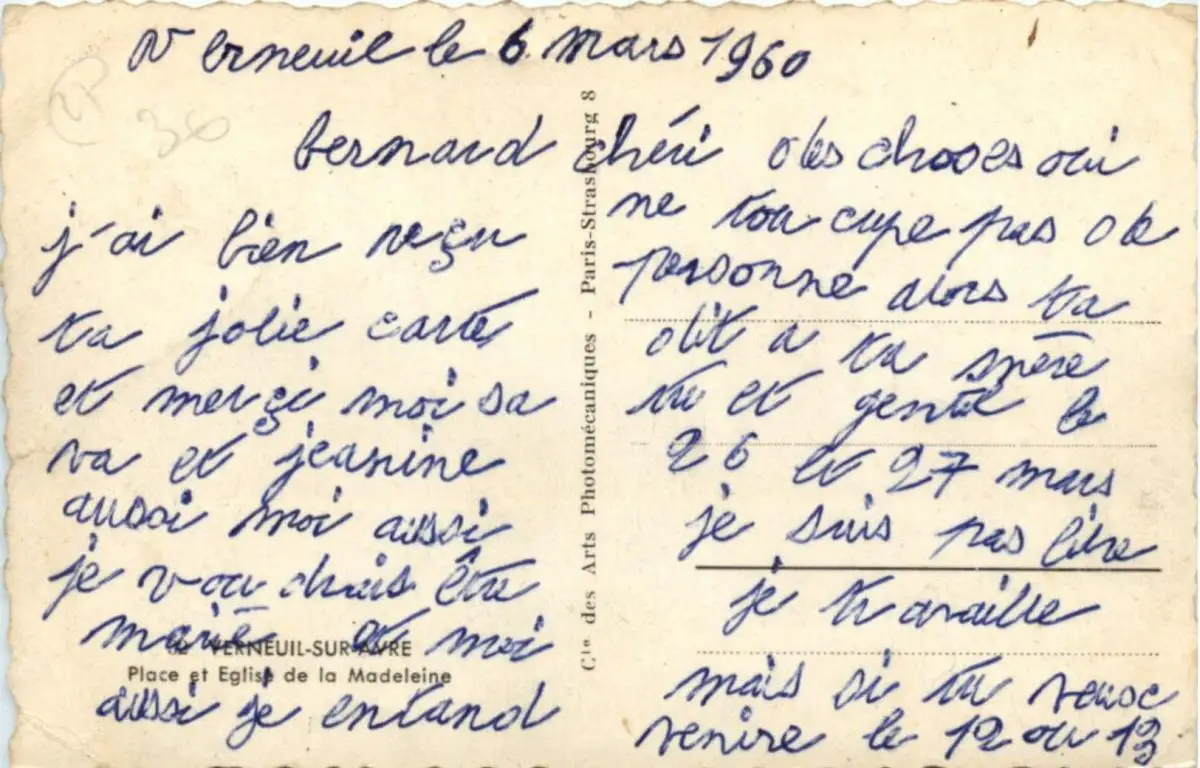 Verneuil le 6 mars 1960
bernard chéri
j'ai bien reçu
ta jolie carte
et merçi moi sa
va et jeanine
aussi moi aussi
je voudrais être
marié et moi
aussi je entand
des choses oui
ne toucupe pas de
personne alors ta
dit a ta mère
tu et gentil le
26 et 27 mars
je suis pas libre
je travaille
mais si tu veux
venire le 12 ou 13
VERNEUIL-SUR-AVRE
Place et Eglise de la Madeleine
Cie des Arts Photomécaniques - Paris-Strasbourg 8
30